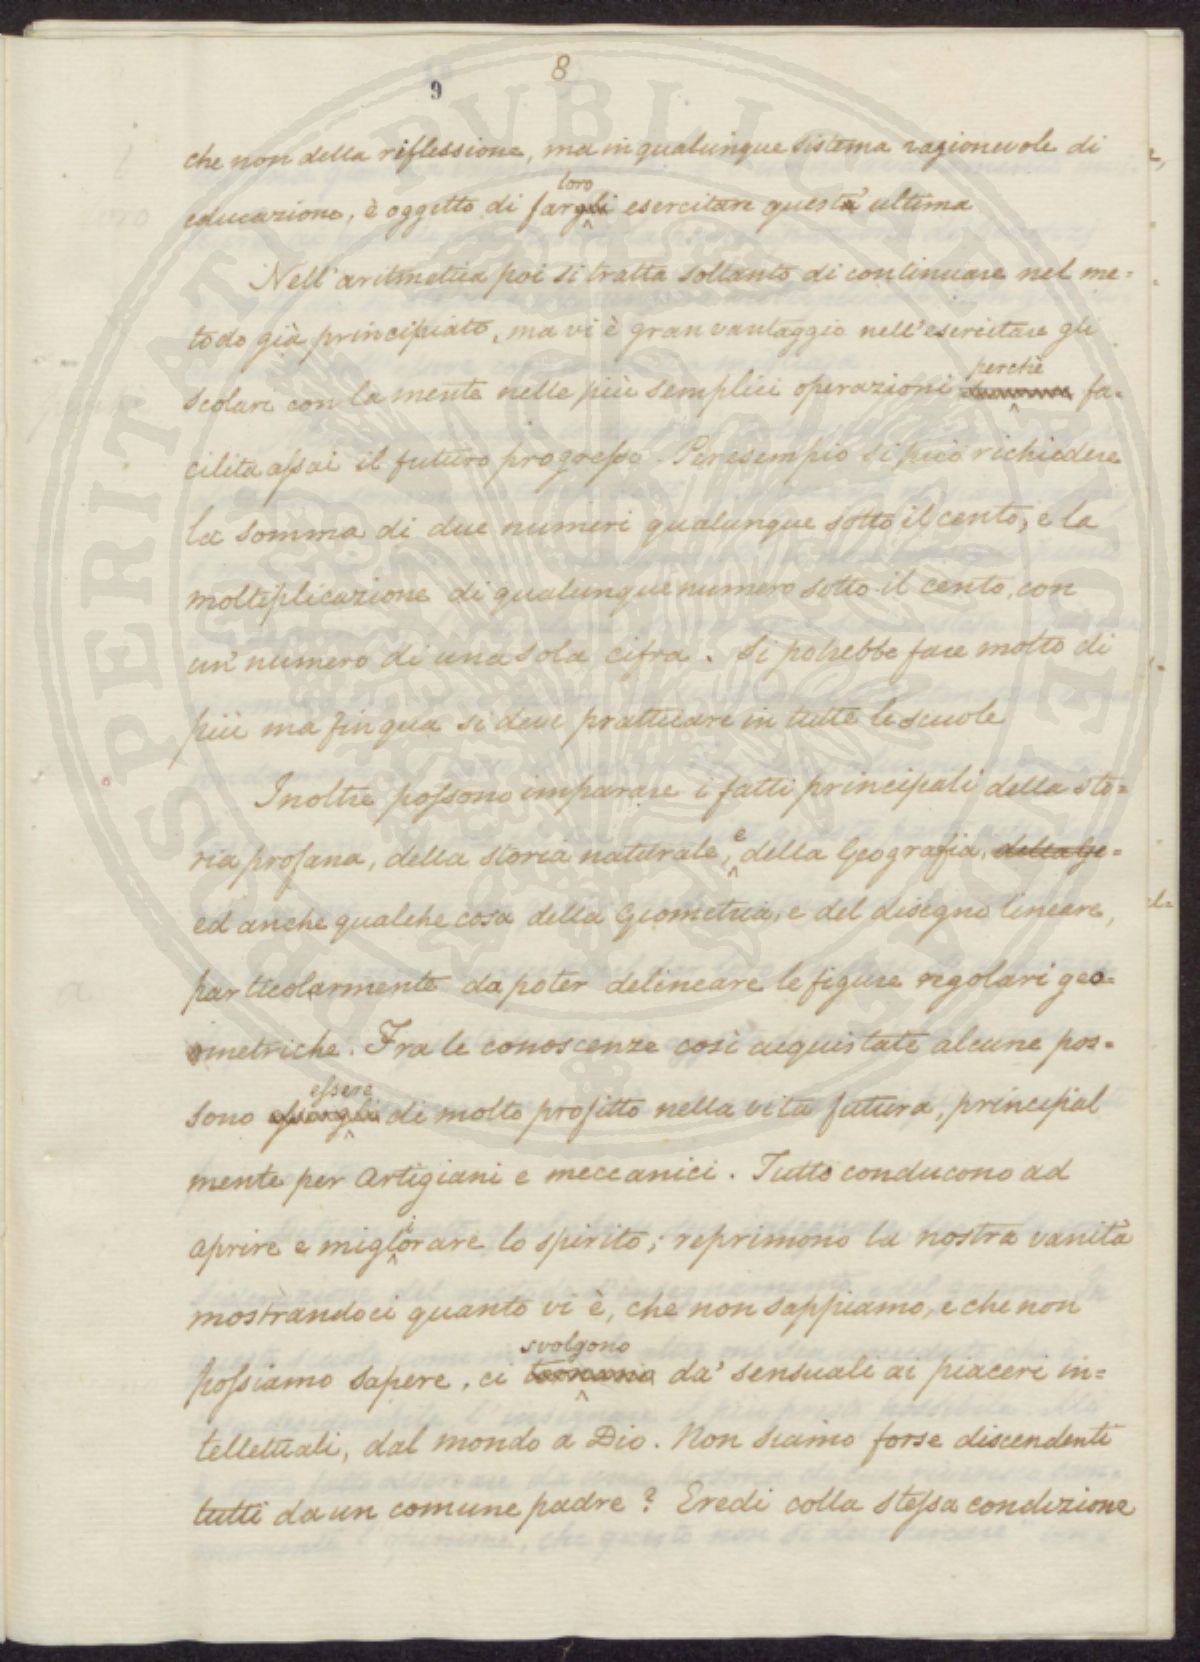 8
9
che non della riflessione, ma in qualunque sistema ragionevole di
loro
educazione, è oggetto di fargli esercitare quest'a ultima
Nell'aritmetica poi si tratta soltanto di continuare nel me=
todo già principiato, ma vi è gran vantaggio nell'esercitare gli
perchè
scolari con la mente nelle più semplici operazioni fa-
cilita assai il futuro progresso. Per esempio si può richiedere
la somma di due numeri qualunque sotto il cento, e la
moltiplicazione di qualunque numero sotto il cento, con
un' numero di una sola cifra. Si potrebbe fare molto di
più ma fin qua si deve pratticare in tutte le scuole
Inoltre possono imparare i fatti principali della sto=
ria profana, della storia naturale, e della Geografia, della Ge=
ed anche qualche cosa della Geometria, e del disegno lineare,
particolarmente da poter delineare le figure regolari geo=
metriche. Fra le conoscenze così acquistate alcune pos=
essere
sono di molto profitto nella vita futura, principal
mente per artigiani e meccanici. Tutto conducono ad
aprire e migliorare lo spirito; reprimono la nostra vanità
mostrandoci quanto vi è, che non sappiamo, e che non
svolgono
possiamo sapere, ci da' sensuali ai piaceri in=
tellettuali, dal mondo a Dio. Non siamo forse discendenti
tutti da un comune padre? Eredi colla stessa condizione
SPERITATI PVBLICAE AVGENDAE PRO